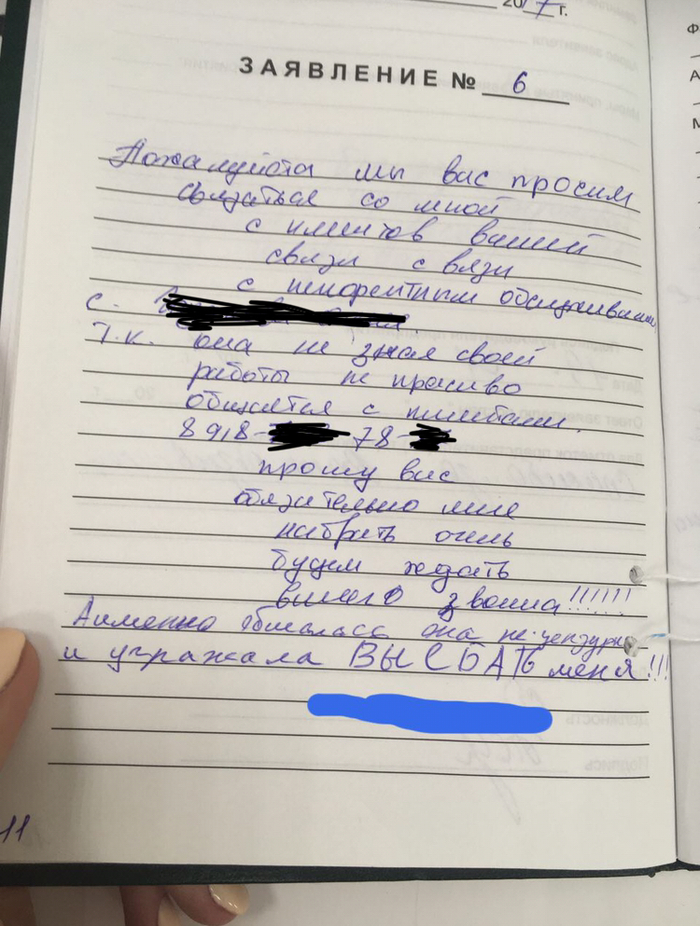 20/7 г.
ЗАЯВЛЕНИЕ № 6
Пожалуйста мы вас просим
связаться со мной
с клиентов вашей
связи с вязи
с некорентным обслуживанием
с.
Т.к. она не зная своей
работы не красиво
общается с клиентами.
8918- -78-
прошу вас
обязательно мне
набрать очень
будем ждать
вашего звонка!!!!!!
Аименно обшалась она не.цензурно
и угражала ВЫЕБАТЬ меня!!!
11